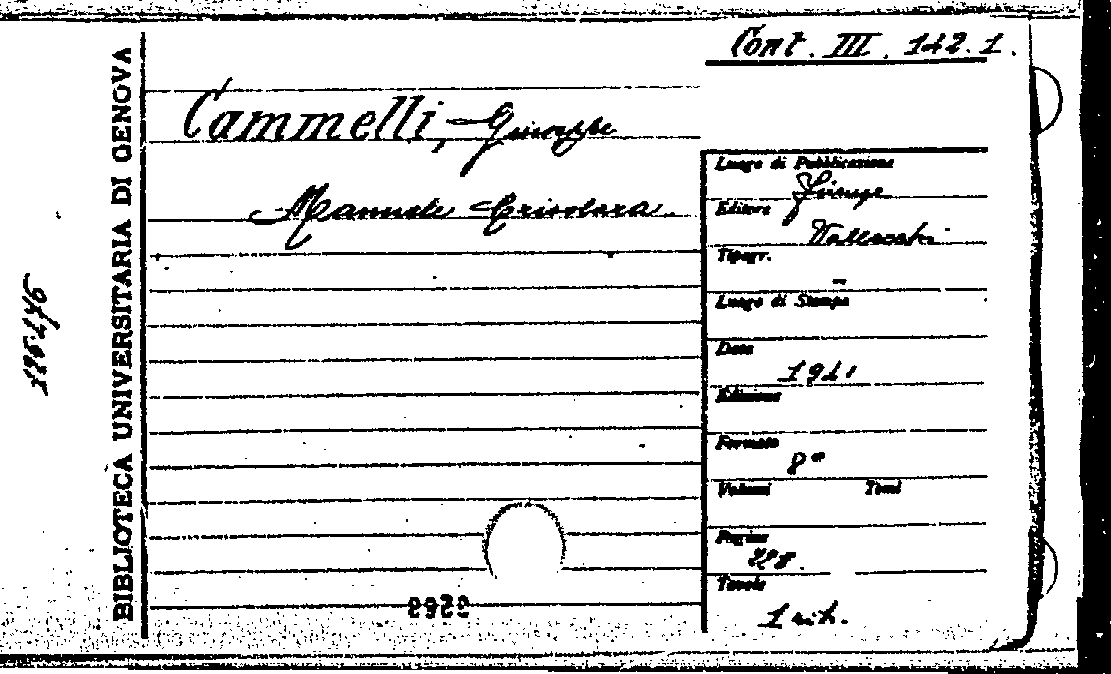 Cont. III. 142.1.
Cammelli, Giuseppe
Manuele Crisolora.
Luogo di Pubblicazione
Firenze
Editore
Vallecchi
Tipogr.
Luogo di Stampa
Data
1941
Edizione
Formato
8°
Volumi Tomi
Pagine
228.
Tavole
1 rit.
BIBLIOTECA UNIVERSITARIA DI GENOVA